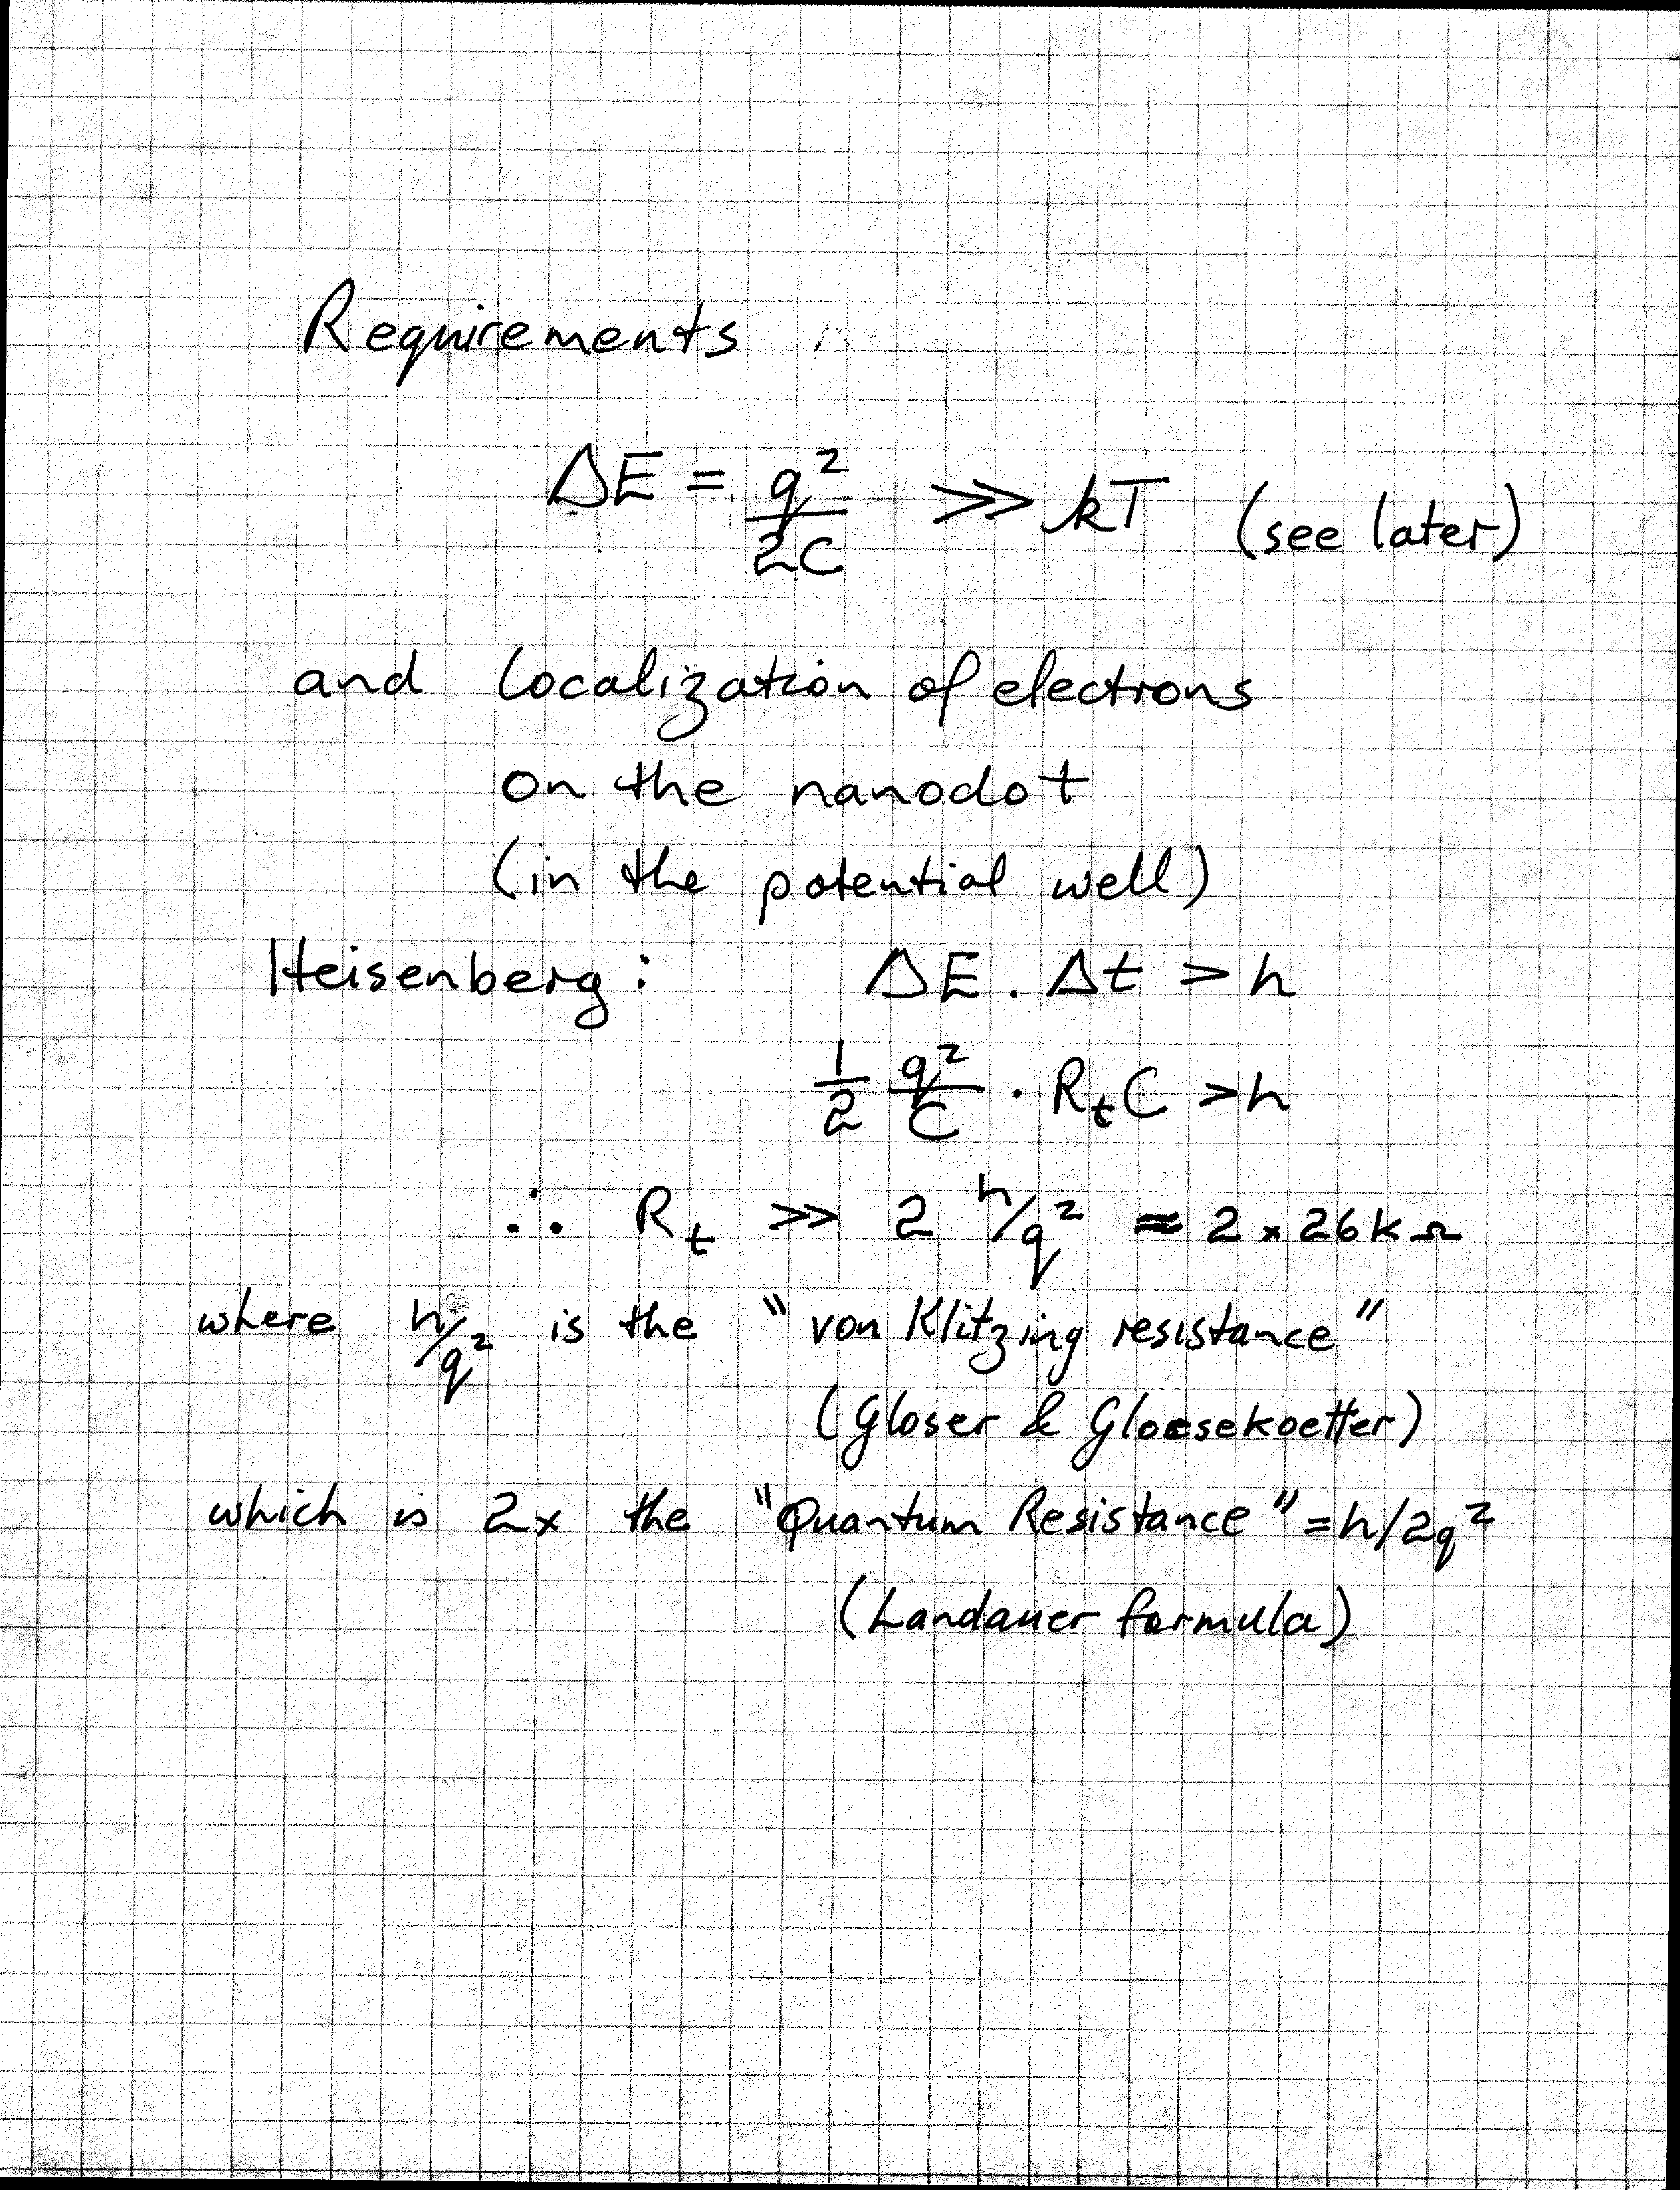 Requirements
ΔE = q²/2C >> kT (see later)
and localization of electrons
on the nanodot
(in the potential well)
Heisenberg: ΔE . Δt > h
1/2 q²/C · RₜC > h
∴ Rₜ >> 2 h/q² ≈ 2 x 26 kΩ
where h/q² is the "von Klitzing resistance"
(Gloser & Gloesekoetter)
which is 2x the "Quantum Resistance" = h/2q²
(Landauer formula)